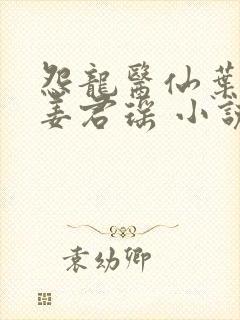 怨龍醫仙葉
姜君瑤 小説
袁幼卿